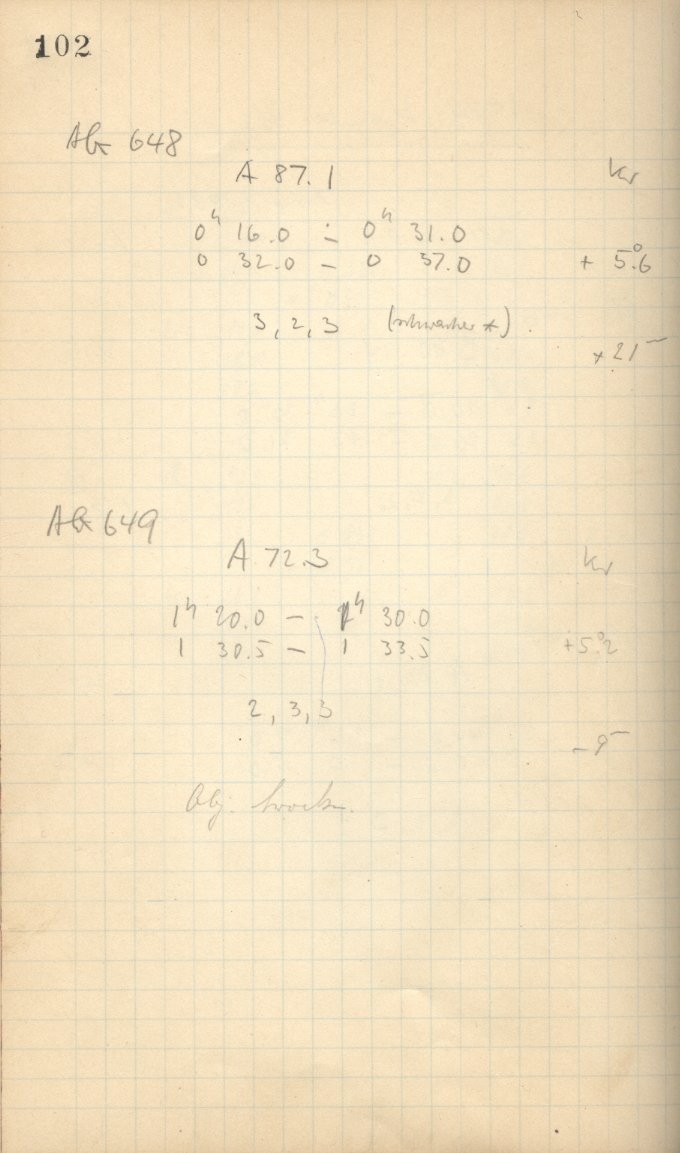 102
AG 648
A 87.1 Kr
0ʰ 16.0 – 0ʰ 31.0
0 32.0 – 0 37.0 + 5°.6
3, 2, 3 (schwacher *).
+ 21
AG 649
A 72.3 Kr
1ʰ 20.0 – 1ʰ 30.0
1 30.5 – 1 33.5 + 5°.2
2, 3, 3
– 9
Obj. trocken.